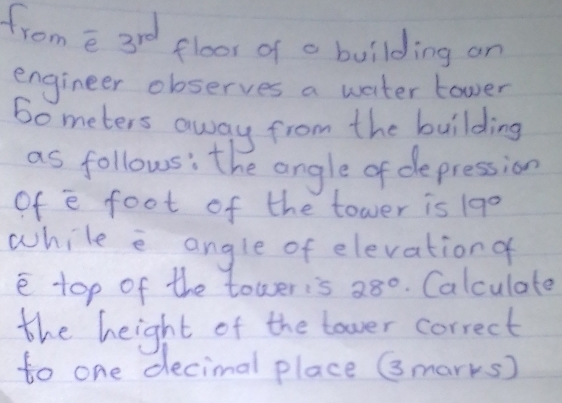 from ē 3rd floor of a building an
engineer observes a water tower
60 meters away from the building
as follows: the angle of depression
of ē foot of the tower is 19°
while ē angle of elevation of
ē top of the tower is 28°. Calculate
the height of the tower correct
to one decimal place (3 marks)